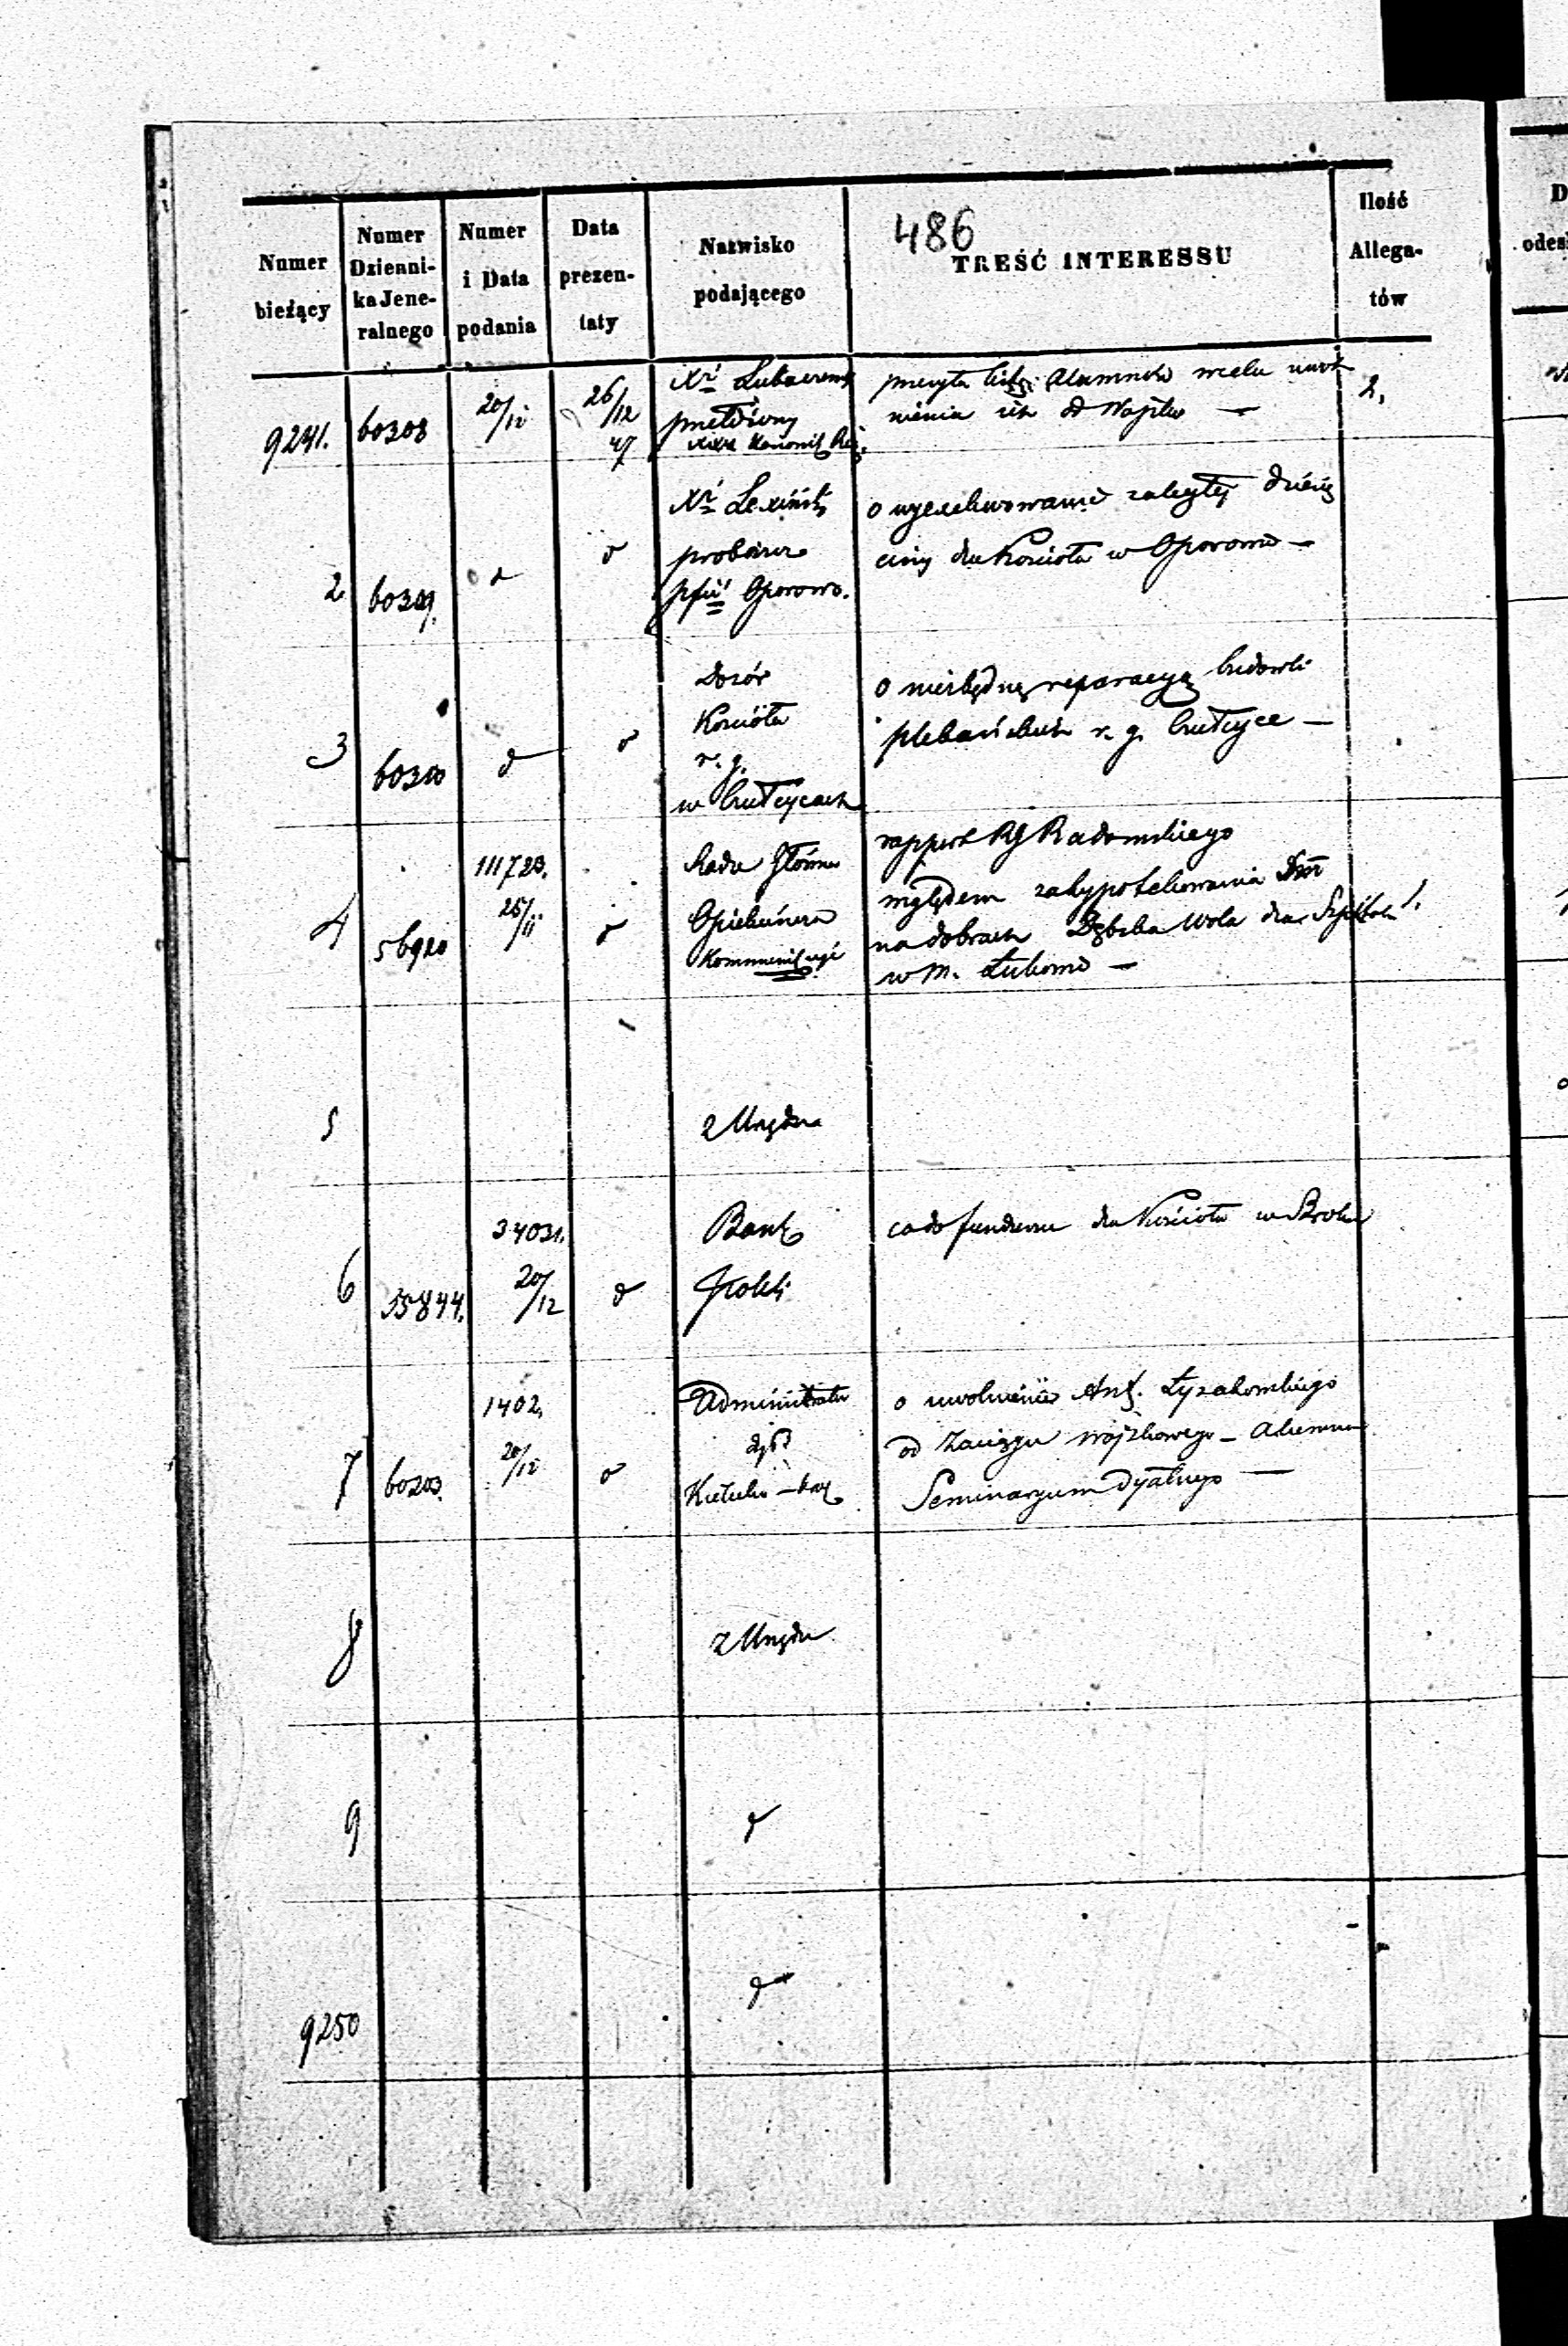 486
Numer bieżący
Numer Dzienni- ka Jene- ralnego
Numer i Data podania
Data prezen- taty
Nazwisko podającego
TREŚĆ INTERESSU
Ilość Allega- tów
9241. 60308 20/12 26/12 47
Xdz
przełożony
XXX Kanonik Reg.
przesyła listę Alumnów celu uwol
nienia ich od Wojska —
2,
2 60309. d d
Xdz Lexińsk
proboszcz
pfii Oporowo.
o wyexekwowanie zaległej dziesię
ciny dla Kościoła w Oporowie —
3 60310 d d
Dozór
Kościoła
r. g.
w
o niezbędną reparacyą budowli
plebańskich r. g. —
4 56920 111723. 25/11 d
Rada Główna
Opiekuńcza
Kommunikuje
rapport RG Radomskiego
względem zahypotekowania
na dobrach Wola dla Szpitala
w M. Łukowie —
1.
5
z Urzędu
6 55844. 34031. 20/12 d
Bank
Polski
co do funduszu dla Kościoła w Broku
7 60203. 1402, 20/12 d
Administrator
dyec
Kielecko — Krak
o uwolnienie Ant. Łyzakowskiego
od Zaciągu wojskowego — Alumna
Seminaryum Dyalnego —
8
z Urzędu
9
d
9250
d